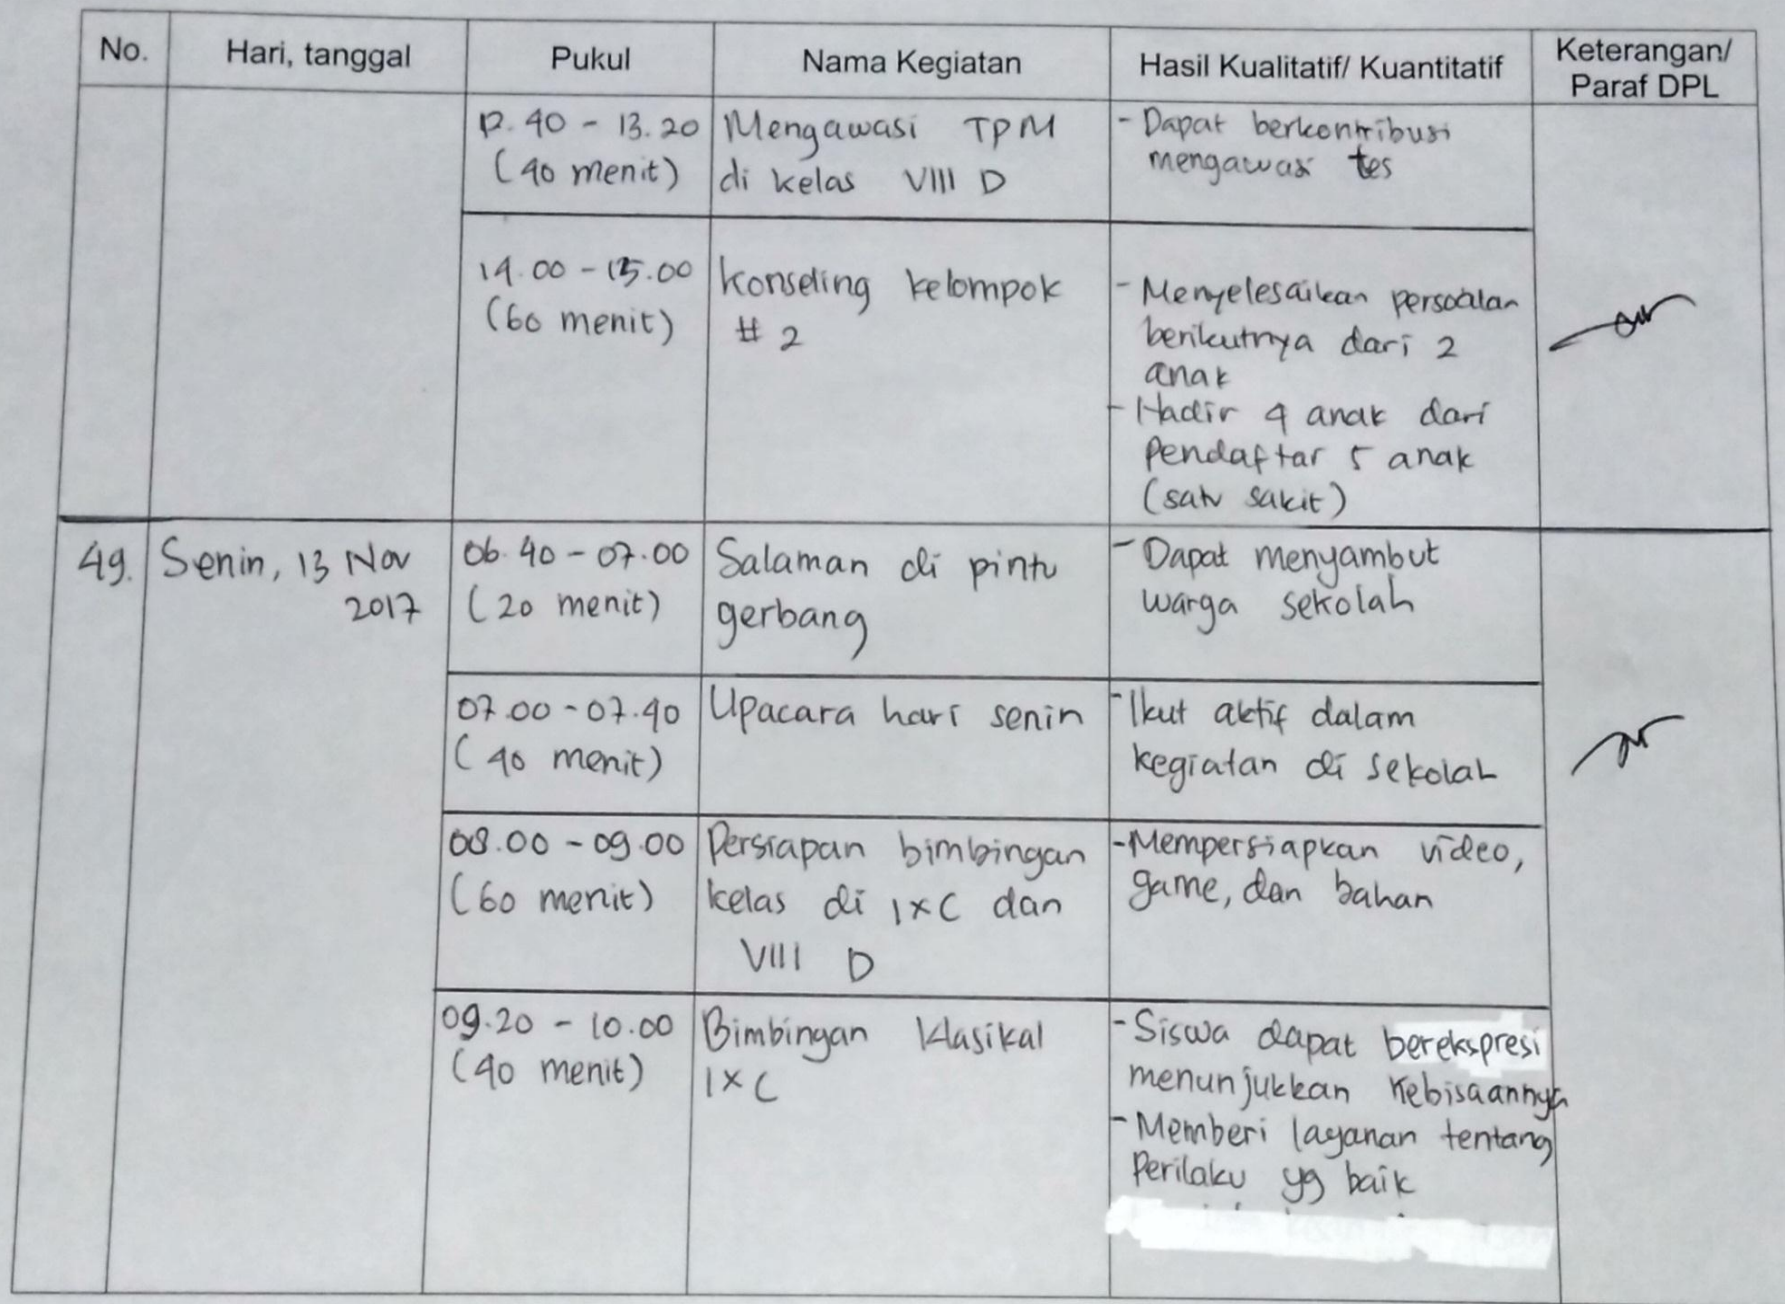 No.
Hari, tanggal
Pukul
Nama Kegiatan
Hasil Kualitatif/ Kuantitatif
Keterangan/
Paraf DPL
12.40 - 13.20
(40 menit)
Mengawasi TPM
di kelas VIII D
- Dapat berkontribusi
mengawasi tes
14.00 - 15.00
(60 menit)
Konseling kelompok
# 2
- Menyelesaikan persoalan
berikutnya dari 2
anak
- Hadir 4 anak dari
Pendaftar 5 anak
(satu sakit)
49.
Senin, 13 Nov
2017
06.40 - 07.00
(20 menit)
Salaman di pintu
gerbang
- Dapat menyambut
warga sekolah
07.00 - 07.40
(40 menit)
Upacara hari senin
- Ikut aktif dalam
kegiatan di sekolah
08.00 - 09.00
(60 menit)
Persiapan bimbingan
kelas di IXC dan
VIII D
- Mempersiapkan video,
game, dan bahan
09.20 - 10.00
(40 menit)
Bimbingan Klasikal
IXC
- Siswa dapat berekspresi
menunjukkan kebisaannya
- Memberi layanan tentang
Perilaku yg baik